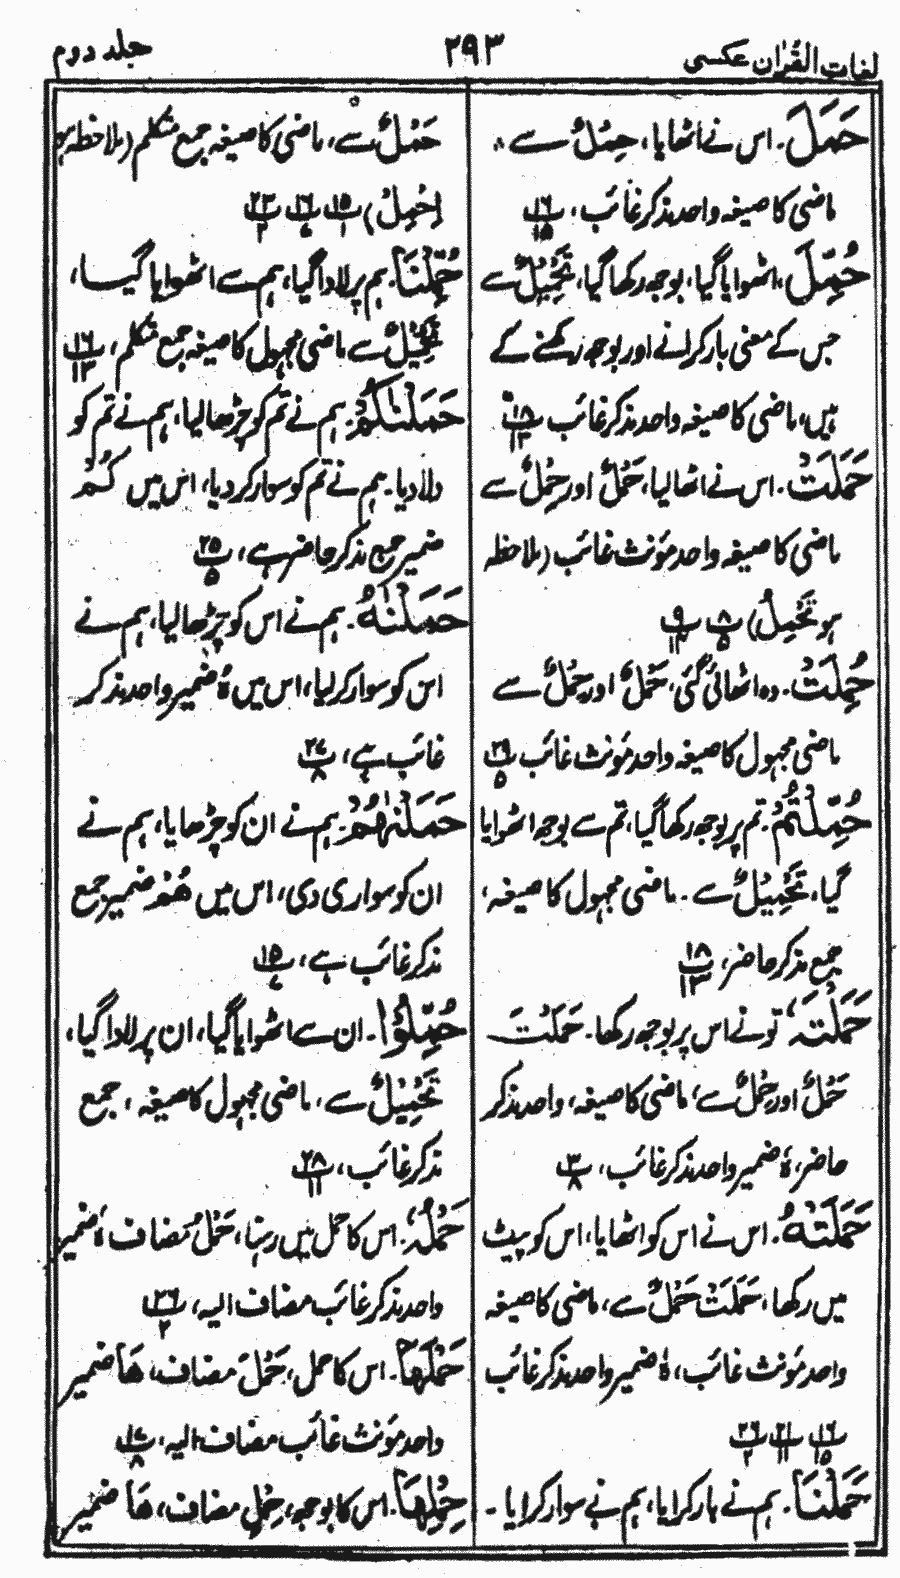 لغات القرآن عکسی
۲۹۳
جلد دوم
حَمَلَ۔ اس نے اٹھایا، حِمْلٌ سے۔
ماضی کا صیغہ واحد مذکر غائب، پ۱۶ ۱۵
حُمِّلَ، اٹھوایا گیا، بوجھ رکھا گیا، تَحْمِیْلٌ سے
جس کے معنی بار کرانے اور بوجھ رکھنے کے
ہیں، ماضی کا صیغہ واحد مذکر غائب پ۱۸ ۱۳
حَمَلَتْ۔ اس نے اٹھا لیا، حَمْلٌ اور حِمْلٌ سے
ماضی کا صیغہ واحد مؤنث غائب (ملاحظہ
ہو تَحْمِیْلٌ) پ۸ ۵ پ۹ ۱۴
حُمِلَتْ۔ وہ اٹھائی گئی، حَمْلٌ اور حِمْلٌ سے
ماضی مجہول کا صیغہ واحد مؤنث غائب پ۲۹ ۵
حُمِّلْتُمْ۔ تم پر بوجھ رکھا گیا، تم سے بوجھ اٹھوایا
گیا، تَحْمِیْلٌ سے۔ ماضی مجہول کا صیغہ،
جمع مذکر حاضر، پ۱۸ ۱۳
حَمَلْتَہٗ، تو نے اس پر بوجھ رکھا۔ حَمَلْتَ
حَمْلٌ اور حِمْلٌ سے، ماضی کا صیغہ، واحد مذکر
حاضر، ہٗ ضمیر واحد مذکر غائب، پ۳ ۸
حَمَلَتْہُ۔ اس نے اس کو اٹھایا، اس کو پیٹ
میں رکھا، حَمَلَتْ حَمْلٌ سے، ماضی کا صیغہ
واحد مؤنث غائب، ہٗ ضمیر واحد مذکر غائب
پ۱۶ ۱۵ پ۲۱ ۱۱ پ۲۶ ۲
حَمَلْنَا۔ ہم نے بار کرایا، ہم نے سوار کرایا۔
حَمْلٌ سے، ماضی کا صیغہ جمع متکلم (ملاحظہ ہو
اِحْمِلْ) پ۱۵ ۱ پ۱۶ ۷ پ۲۳ ۲
حُمِّلْنَا۔ ہم پر لادا گیا، ہم سے اٹھوایا گیا،
تَحْمِیْلٌ سے ماضی مجہول کا صیغہ جمع متکلم، پ۱۶ ۱۳
حَمَلْنٰکُمْ۔ ہم نے تم کو چڑھا لیا، ہم نے تم کو
لاد دیا۔ ہم نے تم کو سوار کر دیا، اس میں کُمْ
ضمیر جمع مذکر حاضر ہے، پ۲۵ ۵
حَمَلْنٰہُ۔ ہم نے اس کو چڑھا لیا، ہم نے
اس کو سوار کر لیا، اس میں ہٗ ضمیر واحد مذکر
غائب ہے، پ۲۷ ۸
حَمَلْنٰہُمْ۔ ہم نے ان کو چڑھایا، ہم نے
ان کو سواری دی، اس میں ھُمْ ضمیر جمع
مذکر غائب ہے، پ۱۵ ۷
حُمِّلُوْا۔ ان سے اٹھوایا گیا، ان پر لادا گیا،
تَحْمِیْلٌ سے، ماضی مجہول کا صیغہ، جمع
مذکر غائب، پ۲۸ ۱۱
حَمْلُہٗ۔ اس کا حمل میں رہنا، حَمْلُ مضاف ہٗ ضمیر
واحد مذکر غائب مضاف الیہ، پ۲۶ ۲
حَمْلَھَا۔ اس کا حمل، حَمْلَ مضاف، ھَا ضمیر
واحد مؤنث غائب مضاف الیہ، پ۱۷ ۸
حِمْلِھَا۔ اس کا بوجھ، حِمْلِ مضاف، ھَا ضمیر